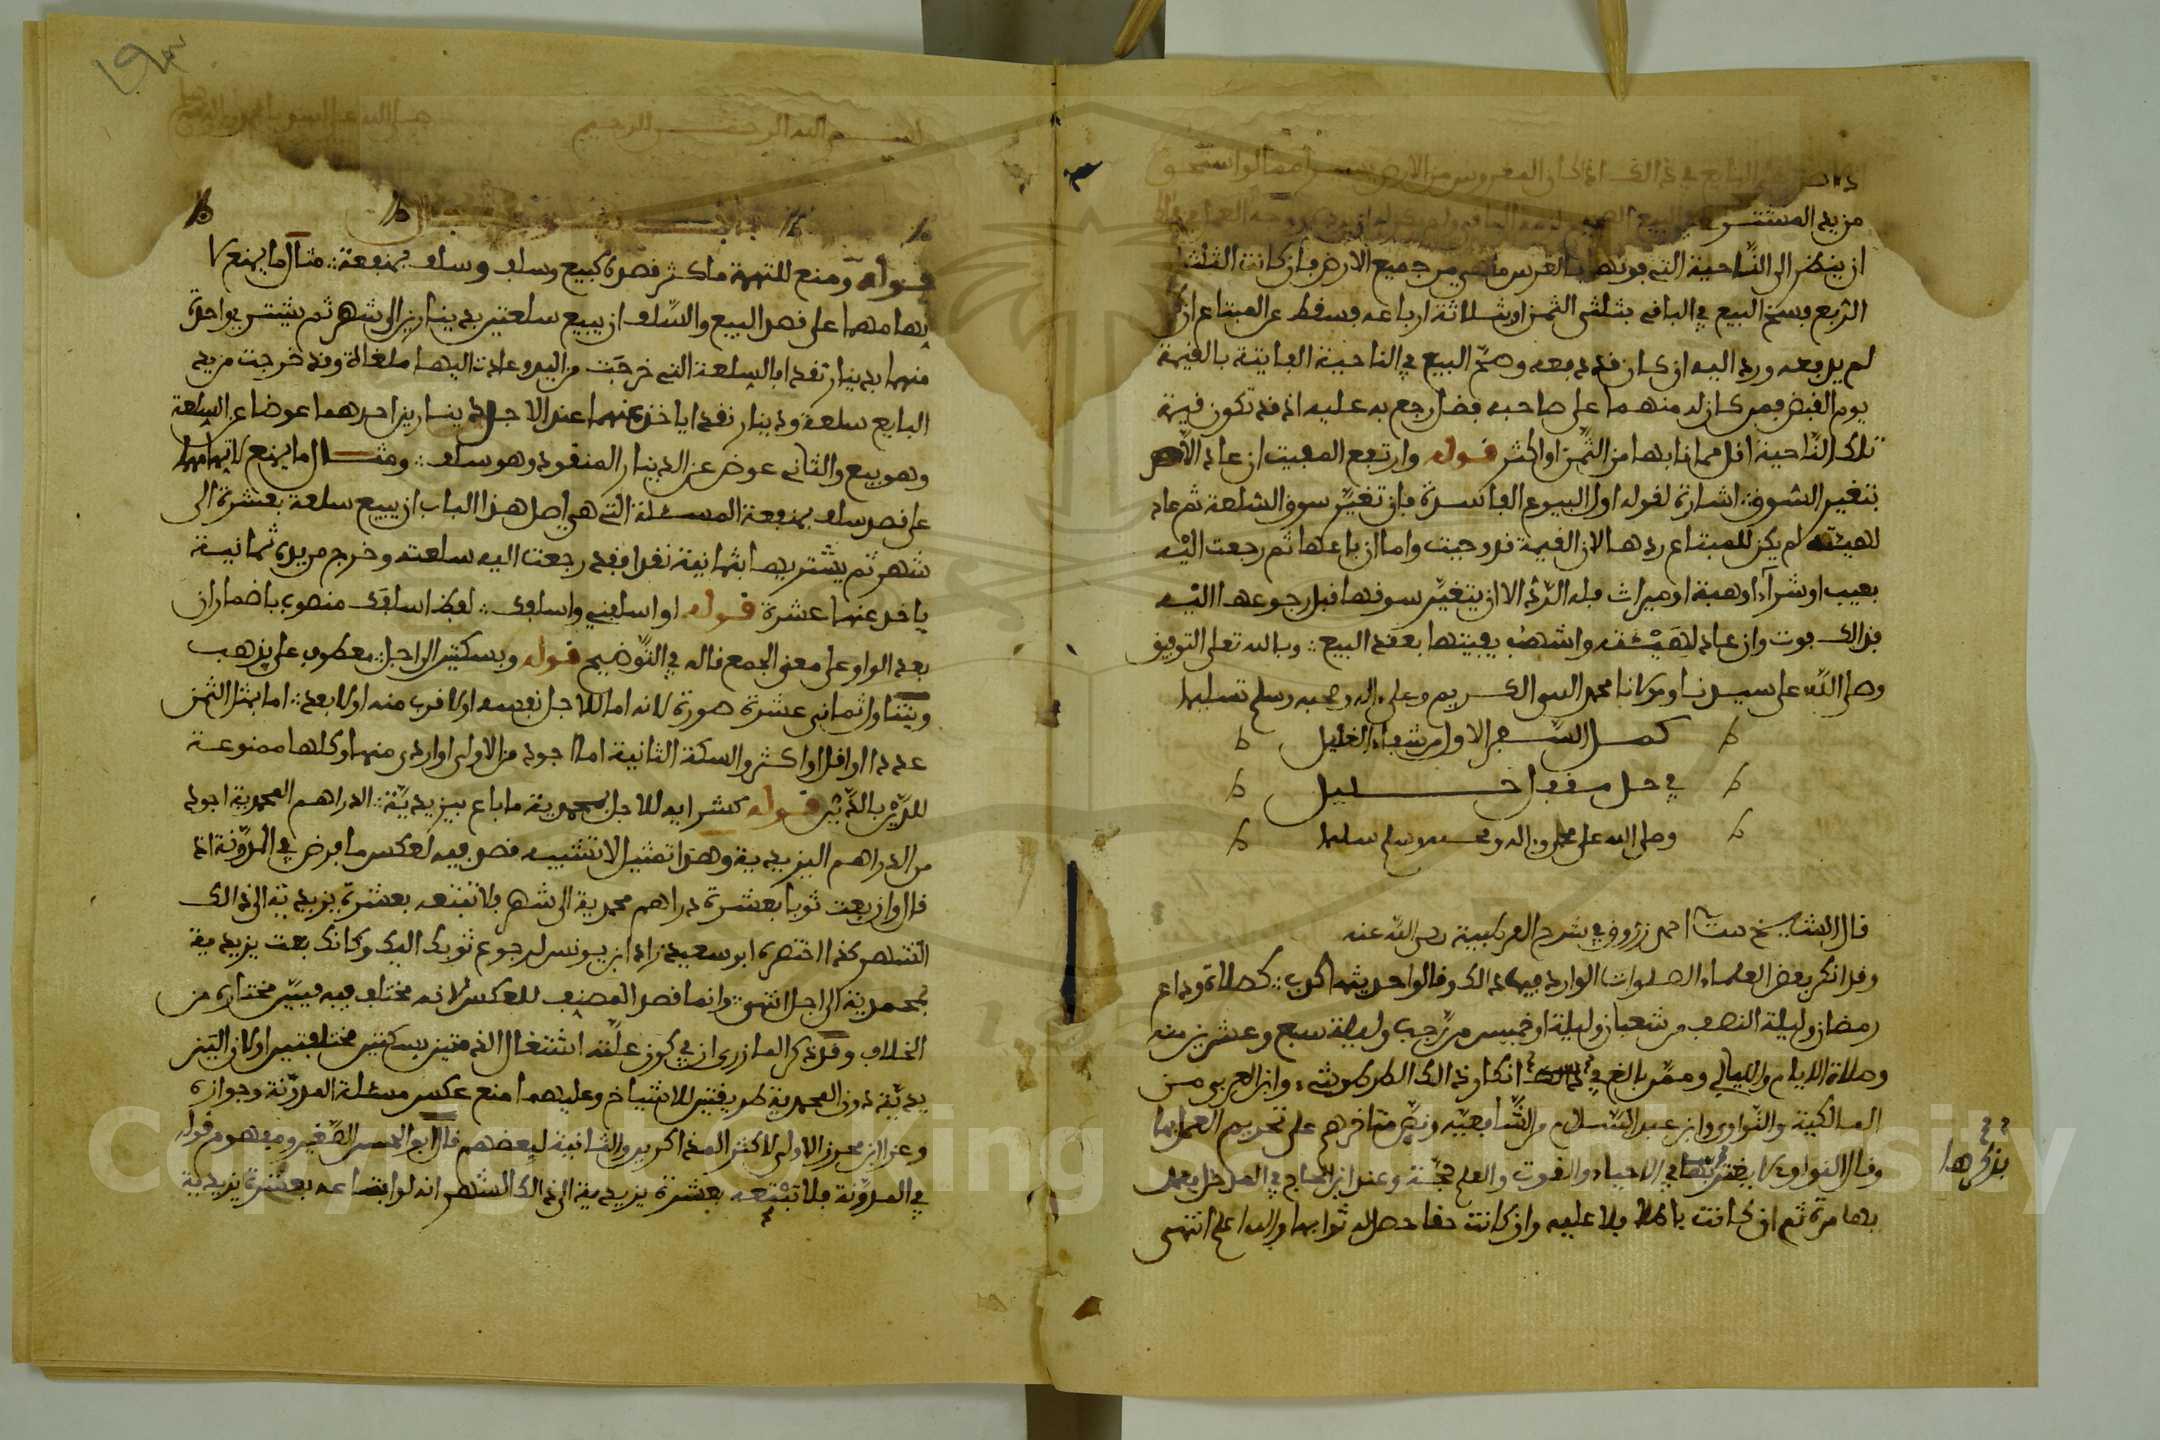 من يد المشتري
ان ينظر الى الناحية التي فوتها بالغرس ما هي من جميع الارض فان كانت الثلث او
الربع فسخ البيع في الباقي بثلثي الثمن او بثلاثة ارباعه وسقط عن المبتاع ان
لم يدفعه ورد اليه ان كان قد دفعه وصح البيع في الناحية الفايتة بالقيمة
يوم القبض فمن كان له منهما على صاحبه فضل رجع به عليه اذ قد تكون قيمة
تلك الناحية اقل مما نابها من الثمن او اكثر قوله وارتفع المفيت ان عاد الا
بتغير السوق اشارة لقوله اول البيوع الفاسدة فان تغير سوق السلعة ثم عاد
لهيئته لم يكن للمبتاع ردها لان القيمة قد وجبت واما ان باعها ثم رجعت اليه
بعيب او شرآء او هبة او ميراث فله الرد الا ان يتغير سوقها قبل رجوعها اليه
فذالك فوت وان عاد لهيئته واشهب يفيتها بعقد البيع وبالله تعلى التوفيق
وصلى الله على سيدنا ومولانا محمد النبي الكريم وعلى اله وصحبه وسلم تسليما
كمل السفر الاول من شفاء الغليل
في حل مقفل خليل
وصلى الله على محمد واله وصحبه وسلم تسليما
قال الشيخ سيدي احمد زروق في شرح القرطبية رضي الله عنه
وقد انكر بعض العلماء الصلوات الوارد فيها ذالك وقالوا حديثها كذب كصلاة وداع
رمضان وليلة النصف من شعبان وليلة اول خميس من رجب وليلة سبع وعشرين منه
وصلاة الايام والليالي وممن بالغ في انكار ذالك الطرطوشي وابن العربي من
المالكية والنواوي وابن عبد السلام من الشافعية ونص متاخرهم على تحريم العمل بها
وقال النواوي لا يغتر بذكرها في الاحياء والقوت والعلم حجة وعند ابن الحاج في المدخل يعمل
بها مرة ثم ان كانت باطلا فلا عليه وان كانت حقا حصل له ثوابها والله اعلم انتهى
بذكرها
١٩٣
بسم الله الرحمن الرحيم
صلى الله على سيدنا محمد واله
قوله ومنع للتهمة ما كثر قصده كبيع وسلف وسلف بمنفعة مثال ما يمنع لا
تهامهما على قصد البيع والسلف ان يبيع سلعتين بدينارين الى شهر ثم يشتري واحدة
منهما بدينار نقدا فالسلعة التي خرجت من اليد وعادت اليها ملغاة وقد خرجت من يد
البايع سلعة ودينار نقدا ياخذ عنهما عند الاجل دينارين احدهما عوضا عن السلعة
وهو بيع والثاني عوض عن الدينار المنقود وهو سلف ومثال ما يمنع لاتهامهما
على قصد سلف بمنفعة المسئلة التي هي اصل هذا الباب ان يبيع سلعة بعشرة الى
شهر ثم يشتريها بثمانية نقدا فقد رجعت اليه سلعته وخرج من يده ثمانية
ياخذ عنها عشرة قوله او اسلفني واسلفك لفظ اسلفك منصوب باضمار ان
بعد الواو على معنى الجمع قاله في التوضيح قوله وبسكتين الى اجل معطوف على بذهب
ويتناول ثماني عشرة صورة لانه اما للاجل نفسه او لاقرب منه او لابعد اما بمثل الثمن
عددا او اقل او اكثر والسكة الثانية اما اجود من الاولى او اردى منها وكلها ممنوعة
للدين بالدين قوله كشرايه للاجل بمحمدية ما باع بيزيدية الدراهم المحمدية اجود
من الدراهم اليزيدية وهذا تمثيل لا تشبيه قصد فيه لعكس ما فرض في المدونة اذ
قال وان بعت ثوبا بعشرة دراهم محمدية الى شهر فلا تبتعه بعشرة يزيدية الى ذالك
الشهر كذا اختصره ابو سعيد زاد ابن يونس لرجوع ثوبك اليك وكانك بعت يزيدية
بمحمدية الى اجل انتهى وانما قصد المصنف للعكس لانه مختلف فيه فبين مختاره من
الخلاف وقد ذكر المازري ان في كون علته اشتغال الذمتين بسكتين مختلفتين او لان اليز
يدية دون المحمدية طريقتين للاشياخ وعليهما منع عكس مسئلة المدونة وجوازه
وعزا ابن محرز الاولى لاكثر المذاكرين والثانية لبعضهم قال ابو الحسن الصغير ومفهوم قوله
في المدونة فلا تبتعه بعشرة يزيدية الى ذالك الشهر انه لو ابتاعه بعشرة يزيدية